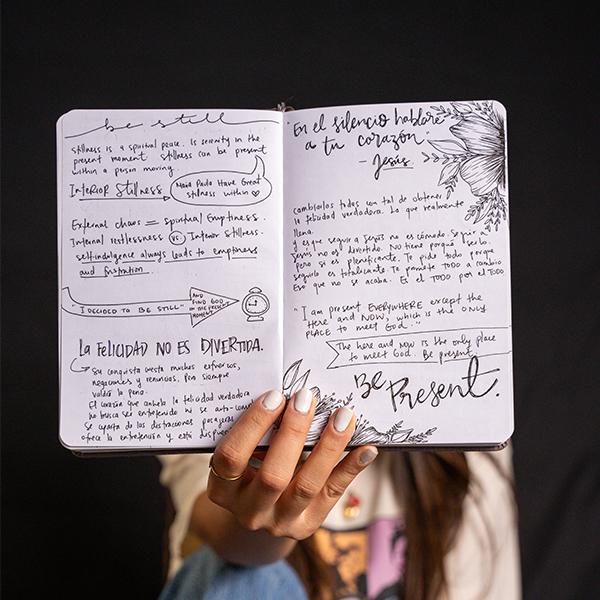 be still
Stillness is a spiritual peace. Is serenity in the
present moment. Stillness can be present
within a person moving.
Interior Stillness
Maria Paula Have Great
stillness within
External chaos = Spiritual Emptiness.
Internal restlessness vs. Interior Stillness.
self-indulgence always leads to emptiness
and frustration.
"I DECIDED TO BE STILL"
AND
FIND GOD
IN THE PRESENT
MOMENT
La FELICIDAD NO ES DIVERTIDA.
Su conquista cuesta muchos esfuerzos,
negaciones y renuncias, pero siempre
valdrá la pena.
El corazón que anhela la felicidad verdadera
no busca ser entretenido ni se auto-
se aparta de las distracciones pasajeras
ofrece la entretención y está dispuesto
"En el silencio hablaré
a tu corazón"
- Jesús.
cambiarlos todos con tal de obtener
la felicidad verdadera. Lo que realmente
llena.
y es que seguir a Jesús no es cómodo. Seguir a
Jesús no es divertido. No tiene porqué serlo.
pero si es plenificante. Te pide todo porque
seguirlo es totalizante. Te promete TODO a cambio
Eso que no se acaba. Es el TODO por el TODO
"I am present EVERYWHERE except the
Here and NOW, which is the ONLY
PLACE to meet God."
The here and now is the only place
to meet God. Be present.
Be Present.